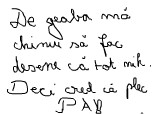 De geaba mă
chinui să fac
desene că tot mih.
Deci cred că plec
PA!!